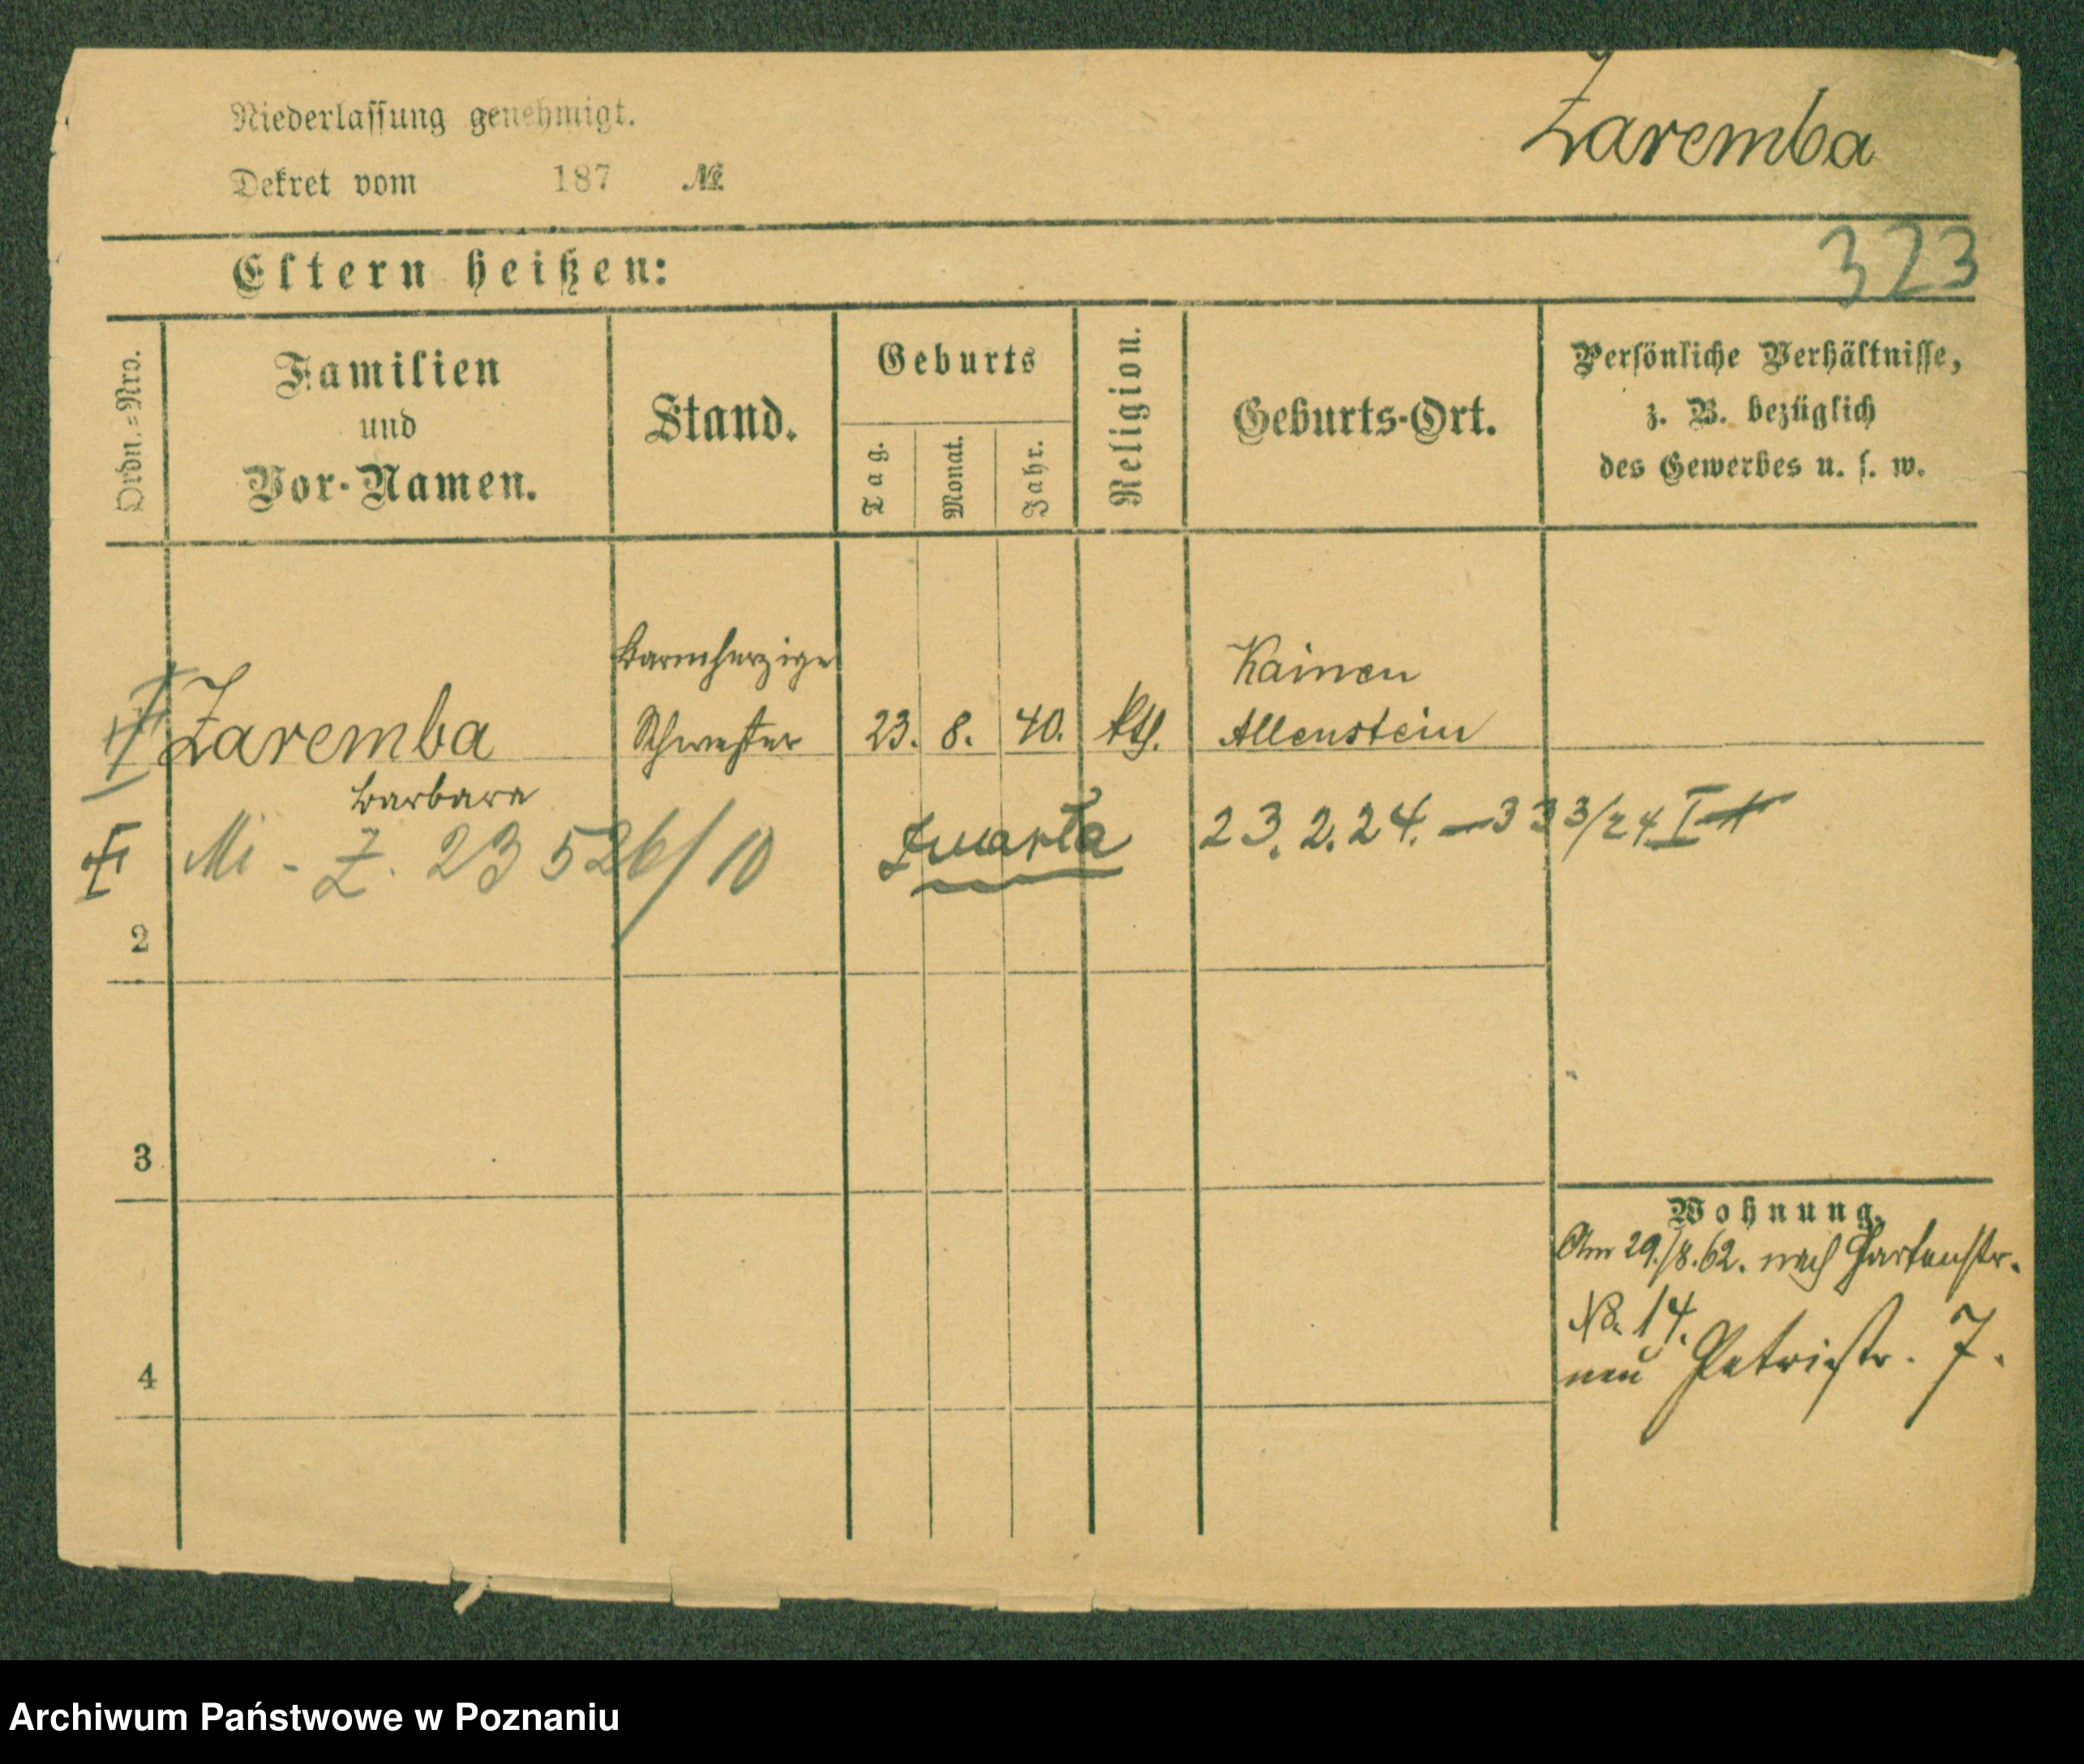 Niederlassung genehmigt.
Dekret vom 187 №
Zaremba
Eltern heißen:
323
Ordn.=Nro.
Familien
und
Vor-Namen.
Stand.
Geburts
Tag.
Monat.
Jahr.
Religion.
Geburts-Ort.
Persönliche Verhältnisse,
z. B. bezüglich
des Gewerbes u. s. w.
Zaremba
Barbara
Barmherzige
Schwester
23. 8. 40. kth.
Kainen
Allenstein
Mi - Z. 23526/10
zmarła 23.2.24. — 333/24 I
2
3
4
Wohnung.
Am 29./8.62. nach Gartenstr.
No. 14.
neu Petristr. 7.
Archiwum Państwowe w Poznaniu